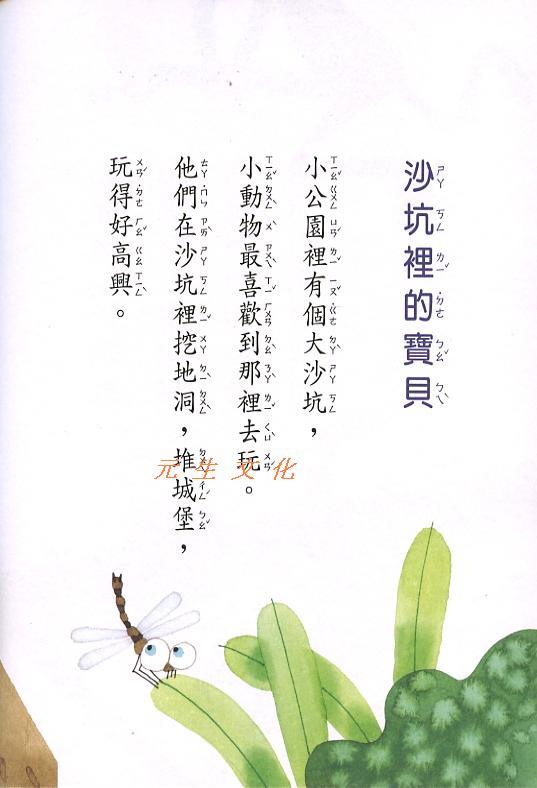 沙坑裡的寶貝
小公園裡有個大沙坑，
小動物最喜歡到那裡去玩。
他們在沙坑裡挖地洞，堆城堡，
玩得好高興。
元生文化